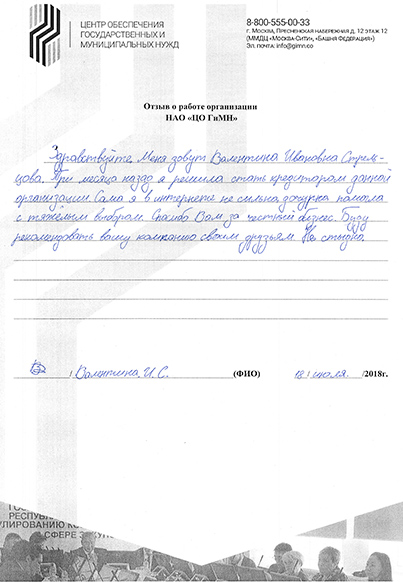 ЦЕНТР ОБЕСПЕЧЕНИЯ
ГОСУДАРСТВЕННЫХ И
МУНИЦИПАЛЬНЫХ НУЖД
8-800-555-00-33
г. Москва, Пресненская набережная д. 12 этаж 12
(ММДЦ «Москва-Сити», «Башня Федерация»)
Эл. почта: info@gimn.co
Отзыв о работе организации
НАО «ЦО ГиМН»
Здравствуйте. Меня зовут Валентина Ивановна Стрель-
цова. Три месяца назад я решила стать кредитором данной
организации. Сама я в интернете не сильна дочурка помогла
с тяжёлым выбором. Спасибо Вам за честный бизнес. Буду
рекомендовать вашу компанию своим друзьям. Не стыдно.
/ Валентина. И. С. (ФИО) 18 / июля. /2018г.
РЕСПУБЛИ
УЛИРОВАНИЮ КО
СФЕРЕ ЗАКУП